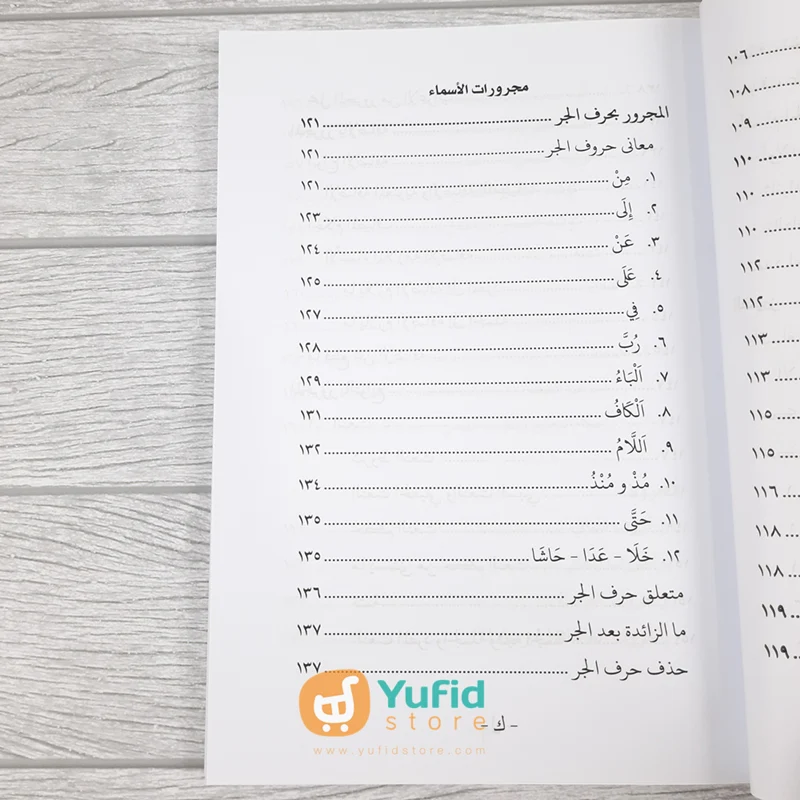 مجرورات الأسماء
المجرور بحرف الجر ........ ١٢١
معانى حروف الجر ........ ١٢١
١. مِنْ ........ ١٢١
٢. إِلَى ........ ١٢٣
٣. عَنْ ........ ١٢٤
٤. عَلَى ........ ١٢٥
٥. فِي ........ ١٢٧
٦. رُبَّ ........ ١٢٨
٧. اَلْبَاءُ ........ ١٢٩
٨. اَلْكَافُ ........ ١٣١
٩. اَللَّامُ ........ ١٣٢
١٠. مُذْ و مُنْذُ ........ ١٣٤
١١. حَتَّى ........ ١٣٥
١٢. خَلَا - عَدَا - حَاشَا ........ ١٣٥
متعلق حرف الجر ........ ١٣٦
ما الزائدة بعد الجر ........ ١٣٧
حذف حرف الجر ........ ١٣٧
- ك -
١٠٦
١٠٨
١٠٩
١١٠
١١٠
١١٠
١١٢
١١٢
١١٣
١١٣
١١٥
١١٥
١١٦
١١٨
١١٨
١١٩
١١٩
Yufid
store
www.yufidstore.com